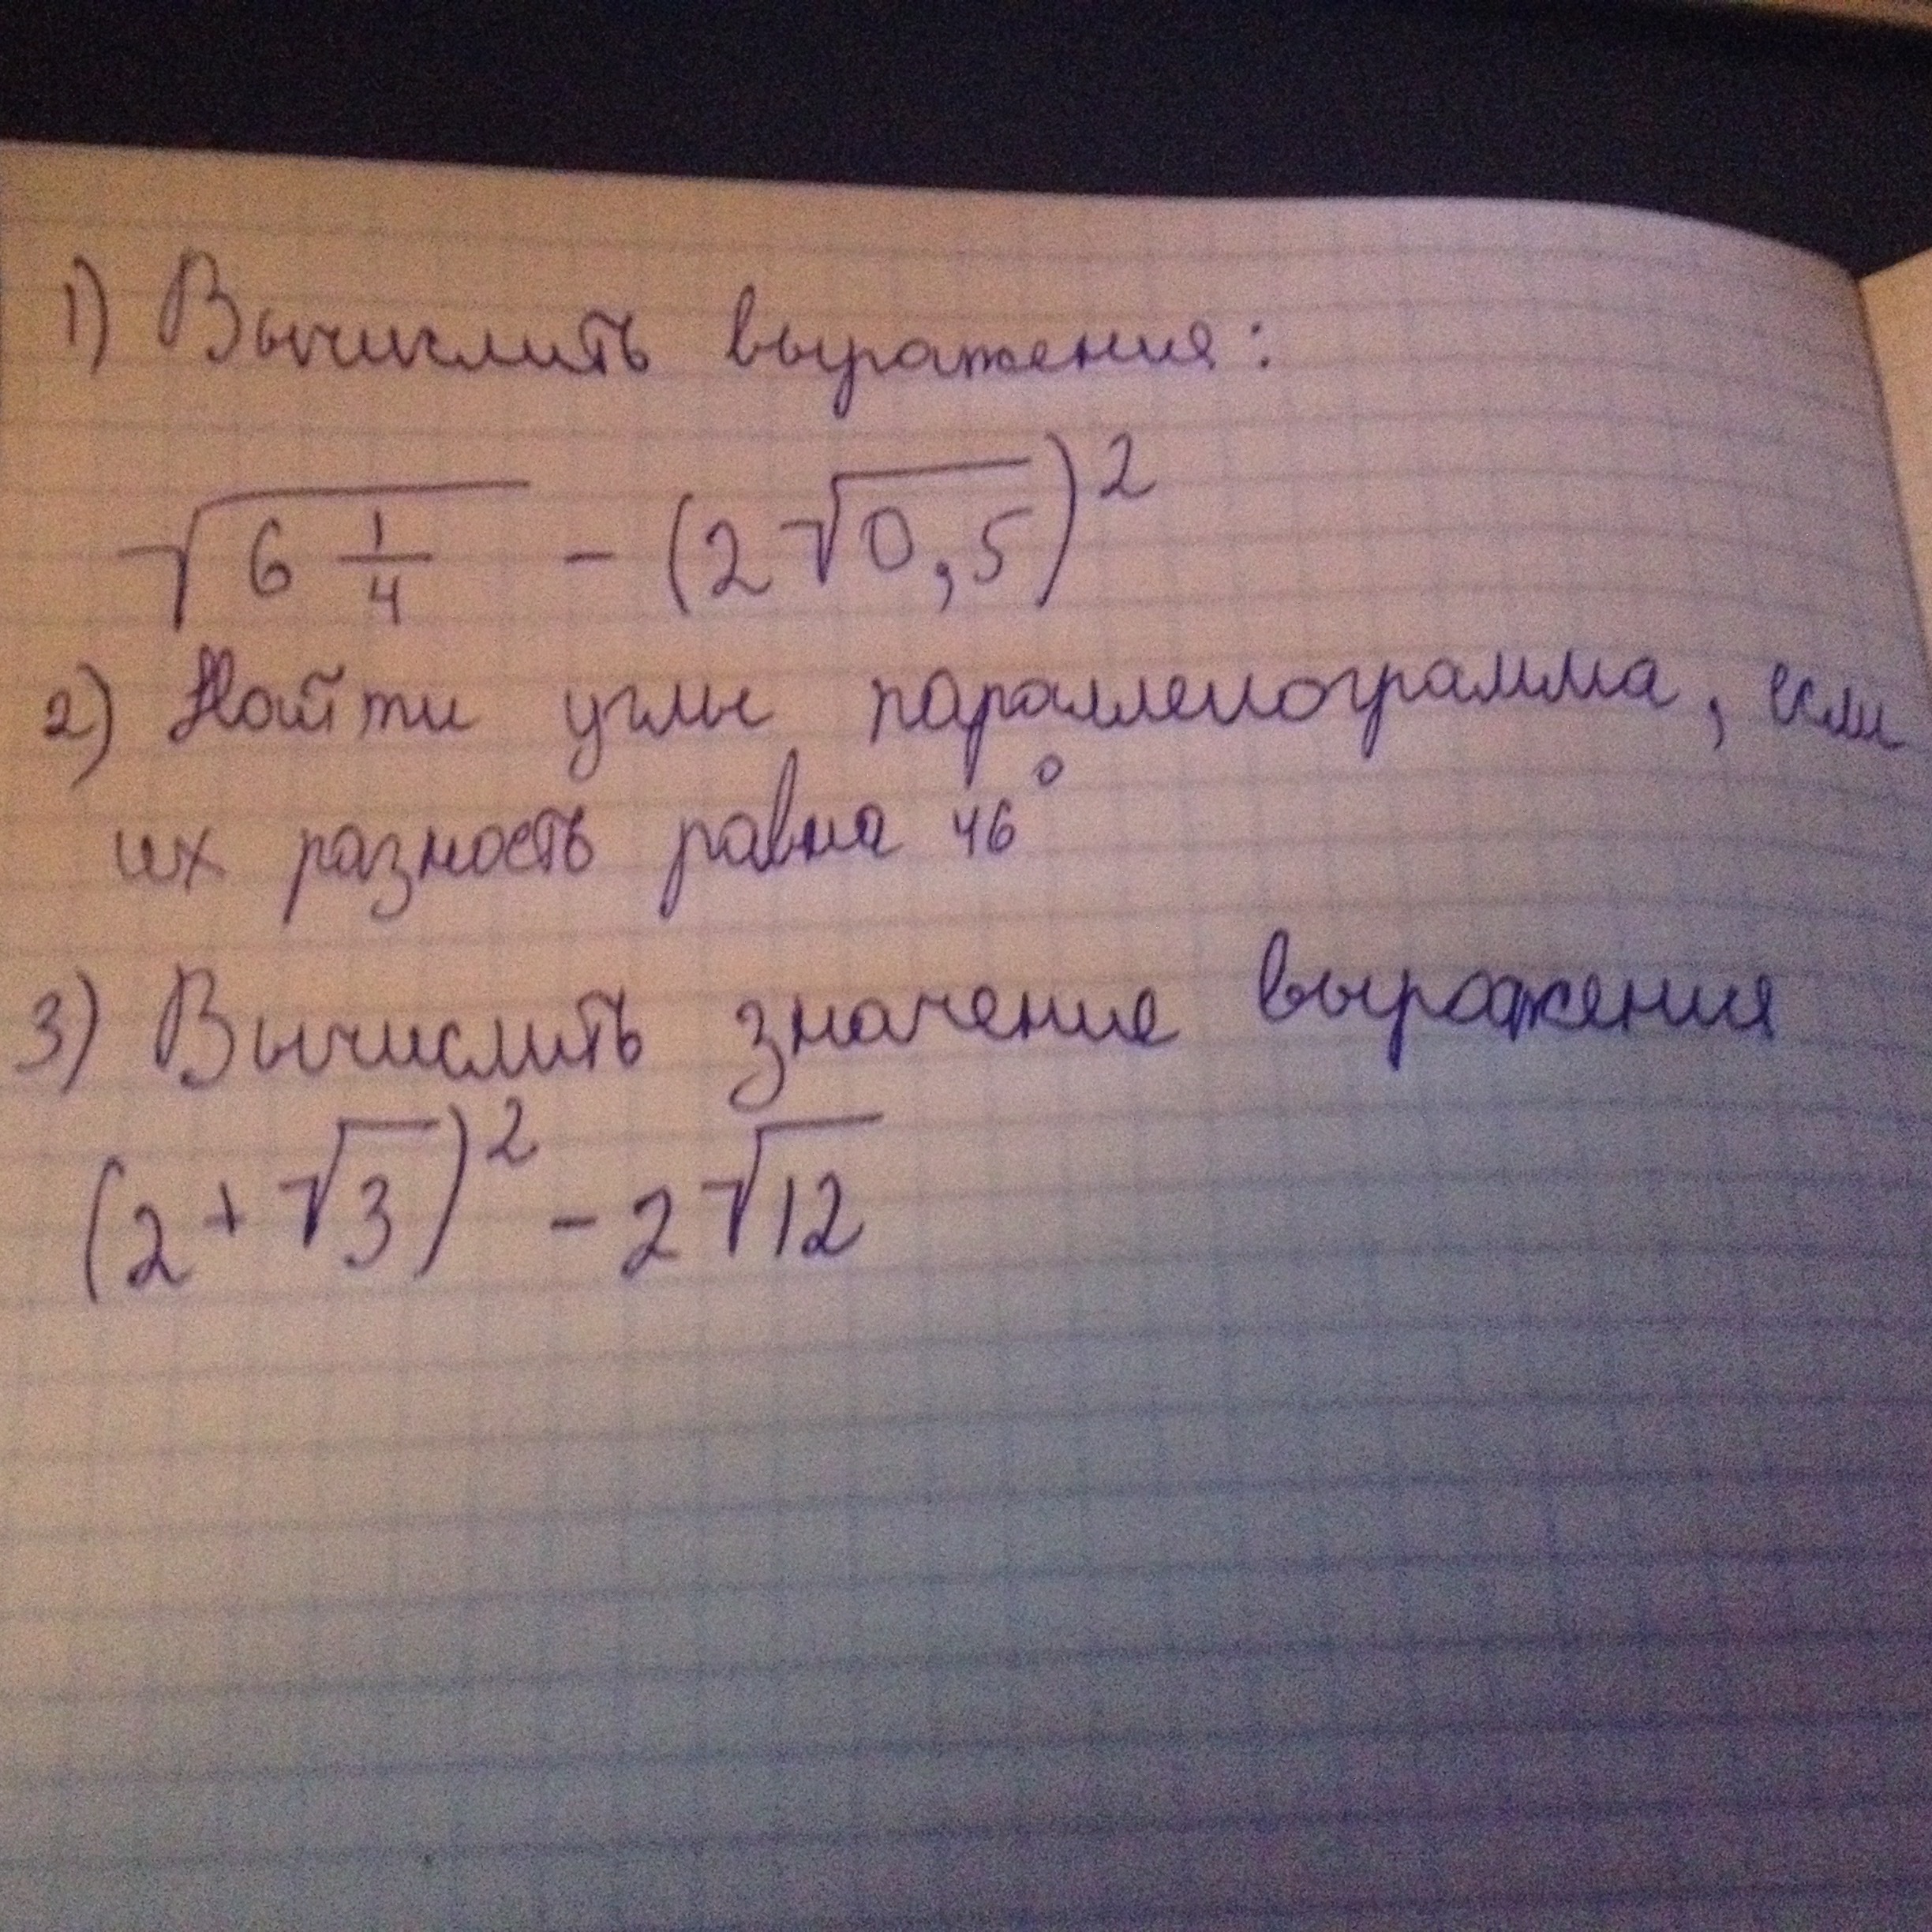 1) Вычислить выражения:
√(6 1/4) - (2√0,5)²
2) Найти углы параллелограмма, если
их разность равна 46°
3) Вычислить значение выражения
(2+√3)² - 2√12